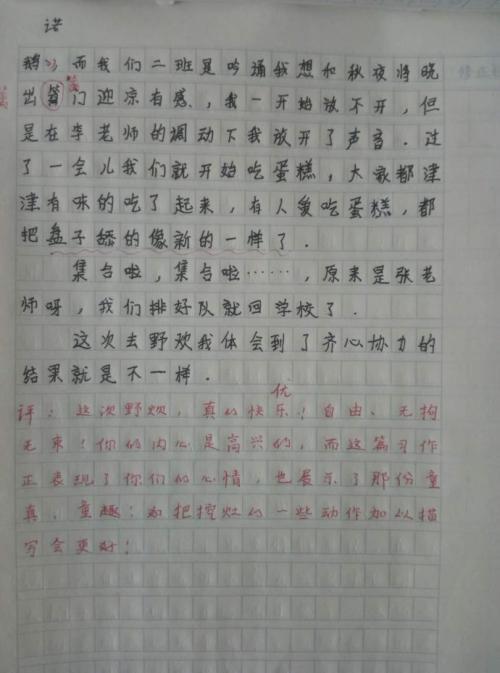 诺
鹅》而我们二班是吟诵我想和秋夜将晓
出篱门迎凉有感，我一开始放不开，但
是在李老师的调动下我放开了声音．过
了一会儿我们就开始吃蛋糕，大家都津
津有味的吃了起来，有人爱吃蛋糕，都
把盘子舔的像新的一样了．
集合啦，集合啦……，原来是张老
师呀，我们排好队就回学校了．
这次去野炊我体会到了齐心协力的
结果就是不一样．
优
评：这次野炊，真的快乐！自由、无拘
无束！你的内心是高兴的，而这篇习作
正表现了你们的心情，也展示了那份童
真、童趣！如把挖灶的一些动作加以描
写会更好！